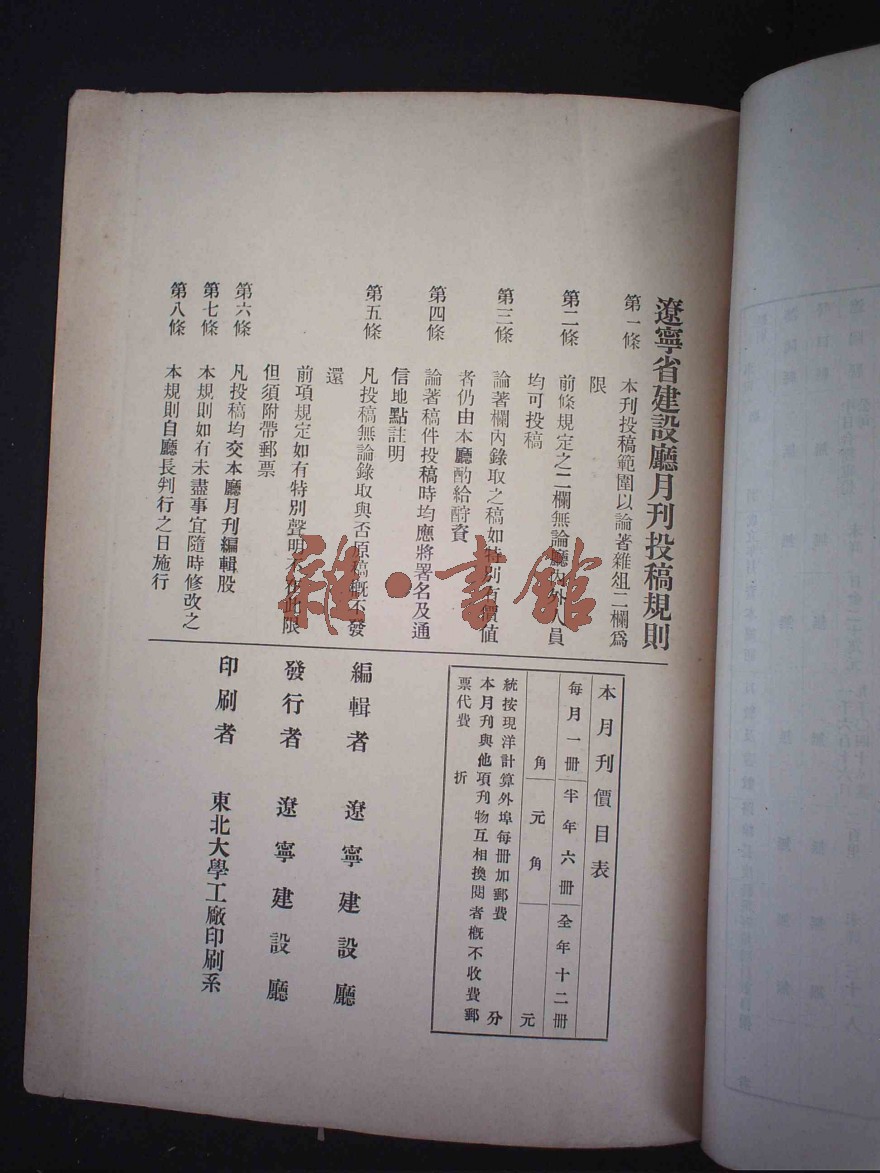 遼寧省建設廳月刊投稿規則
第一條 本刊投稿範圍以論著雜俎二欄爲
限
第二條 前條規定之二欄無論廳內外人員
均可投稿
第三條 論著欄內錄取之稿如特別有價値
者仍由本廳酌給酧資
第四條 論著稿件投稿時均應將署名及通
信地點註明
第五條 凡投稿無論錄取與否原稿槪不發
還
前項規定如有特別聲明不在此限
但須附帶郵票
第六條 凡投稿均交本廳月刊編輯股
第七條 本規則如有未盡事宜隨時修改之
第八條 本規則自廳長判行之日施行
本月刊價目表
每月一冊 半年六冊 全年十二冊
角 元角 元
統按現洋計算外埠每冊加郵費 分
本月刊與他項刊物互相換閱者槪不收費郵
票代費 折
編輯者 遼寧建設廳
發行者 遼寧建設廳
印刷者 東北大學工廠印刷系
雜·書館